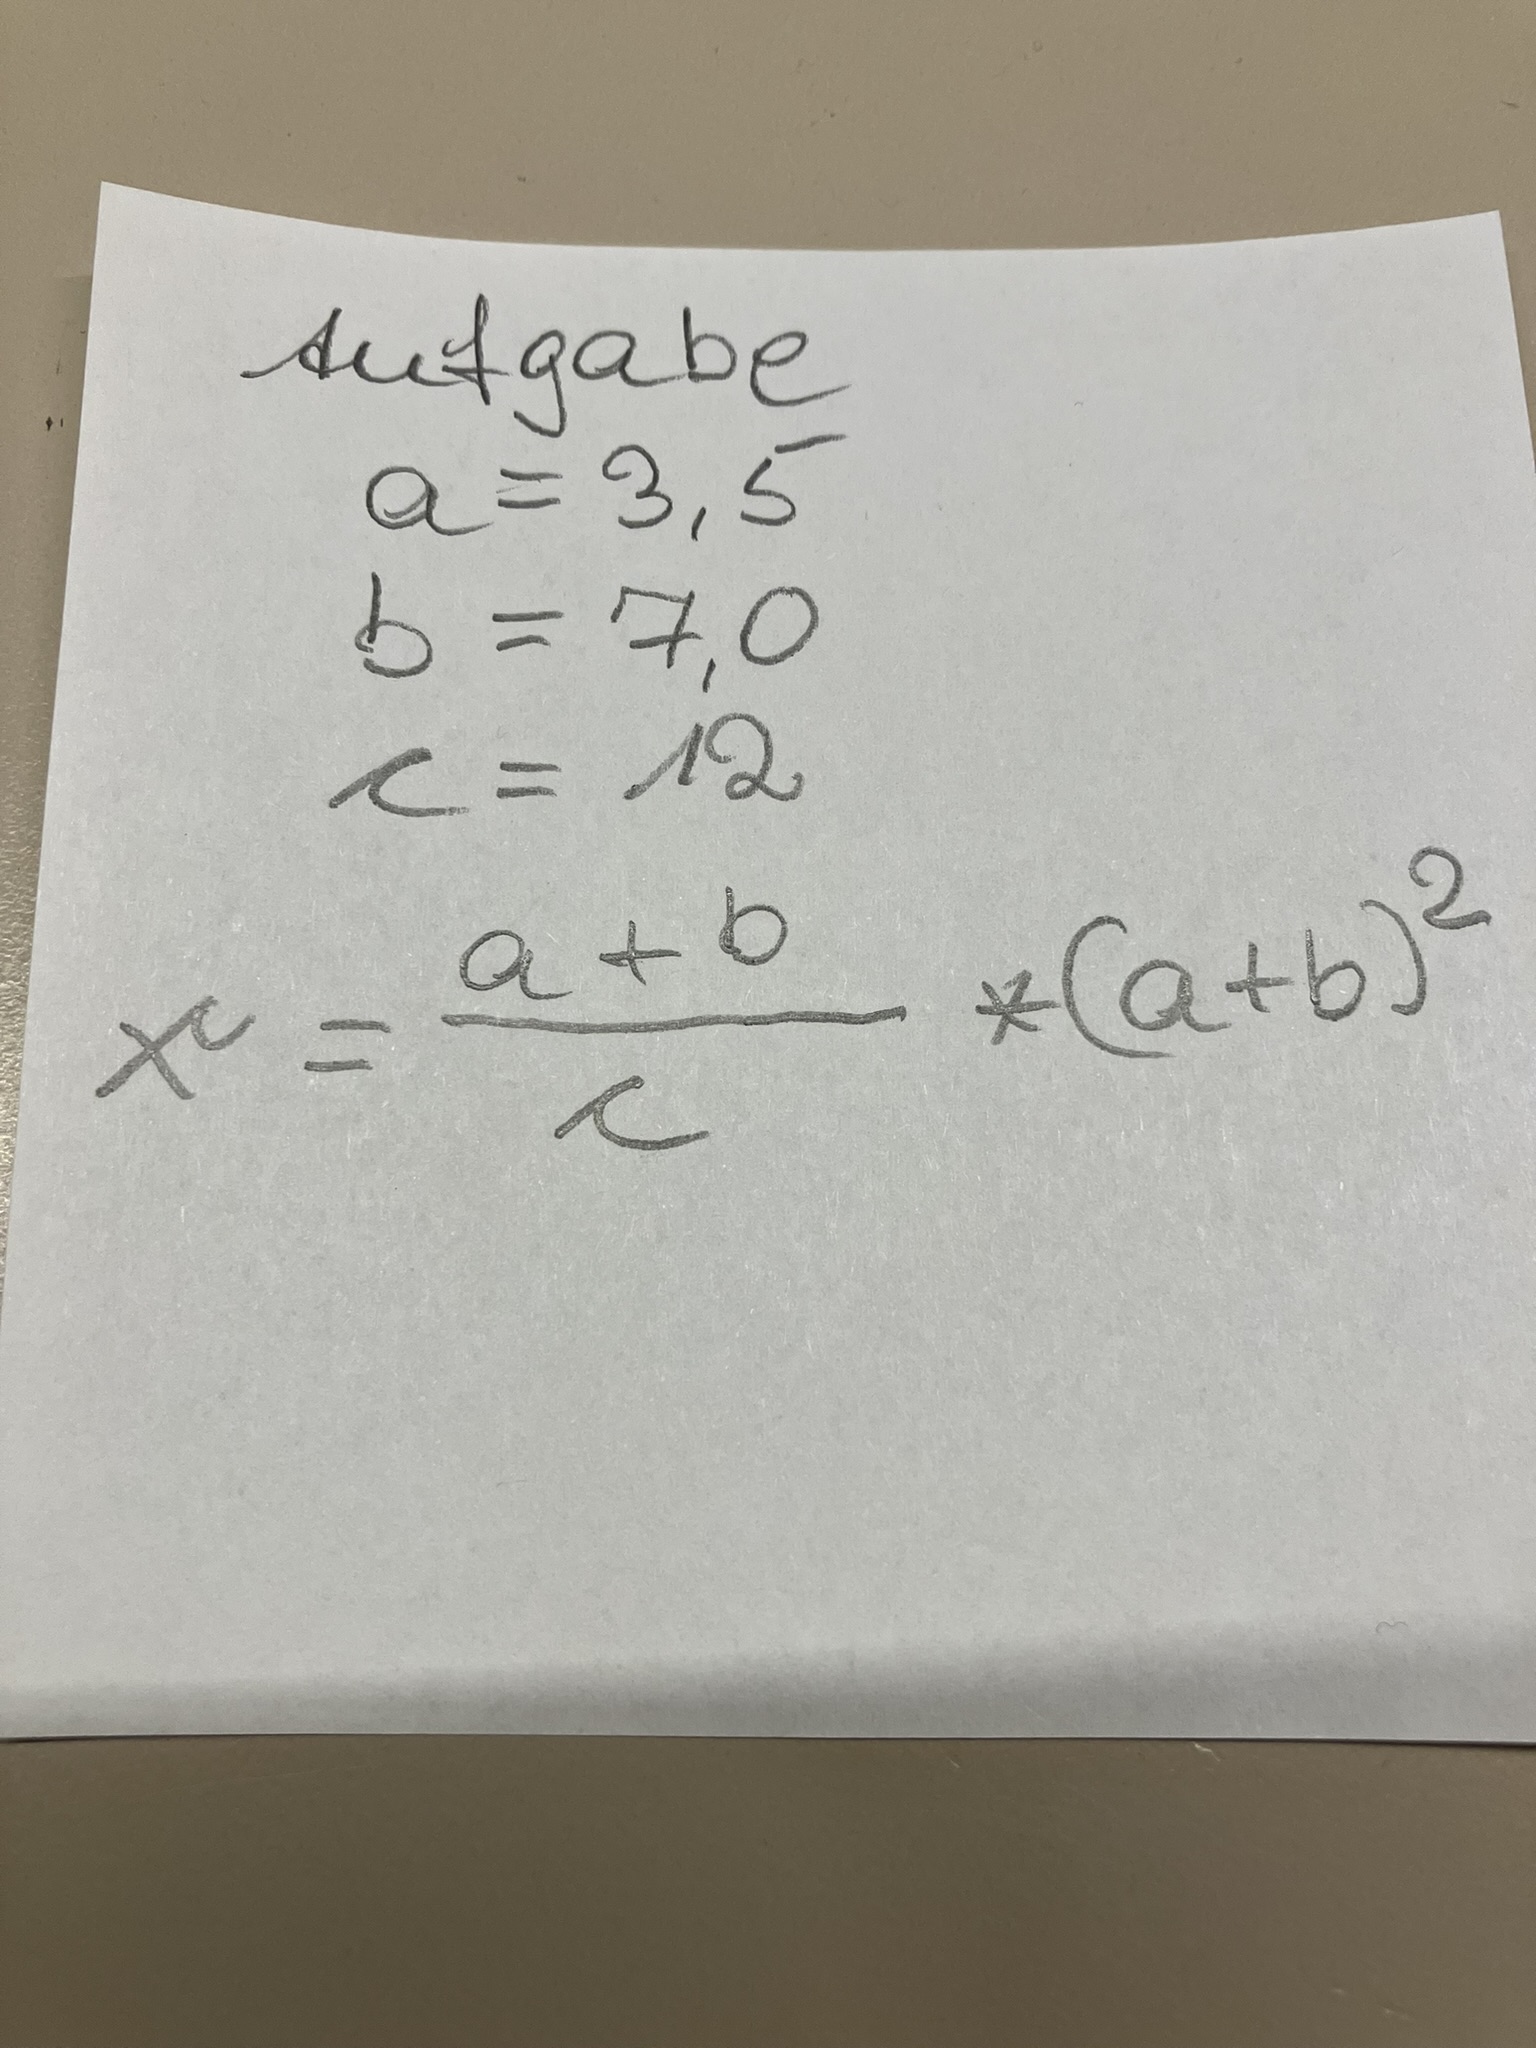 Aufgabe
a = 3,5
b = 7,0
c = 12
xᶜ = (a + b) / c * (a+b)²